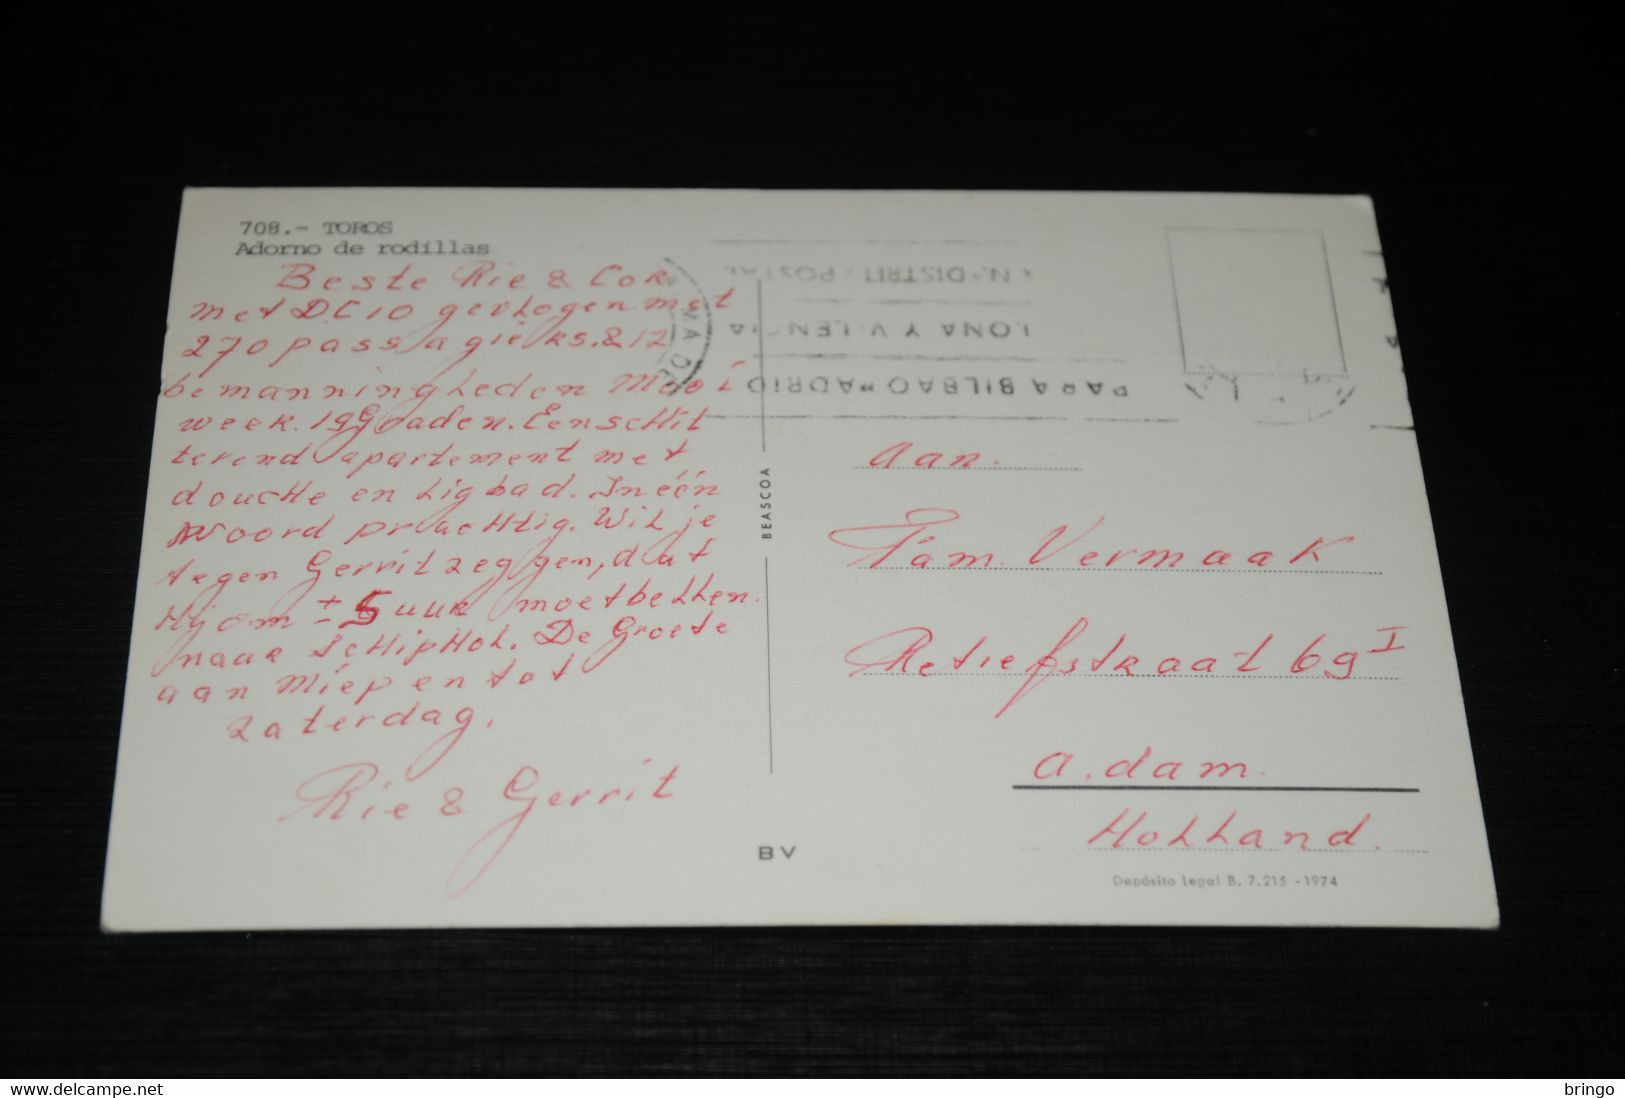 708.- TOROS
Adorno de rodillas
Beste Rie & Cor
met DC10 gevlogen met
270 passagiers. & 12
bemanningsleden Mooi
week. 19 Graden. Een schit
terend apartement met
douche en ligbad. In één
woord prachtig. Wil je
tegen Gerrit zeggen, dat
Hij om ± 5 uur moet bellen.
naar schiphol. De Groete
aan Miep en tot
zaterdag.
Rie & Gerrit
BEASCOA
BV
PARA BILBAO MADRID
LONA Y VALENCIA
Nº DISTRITO POSTAL
aan.
Fam. Vermaak
Retiefstraat 69 I
A.dam.
Holland.
Depósito Legal B. 7.215 - 1974
www.delcampe.net
bringo